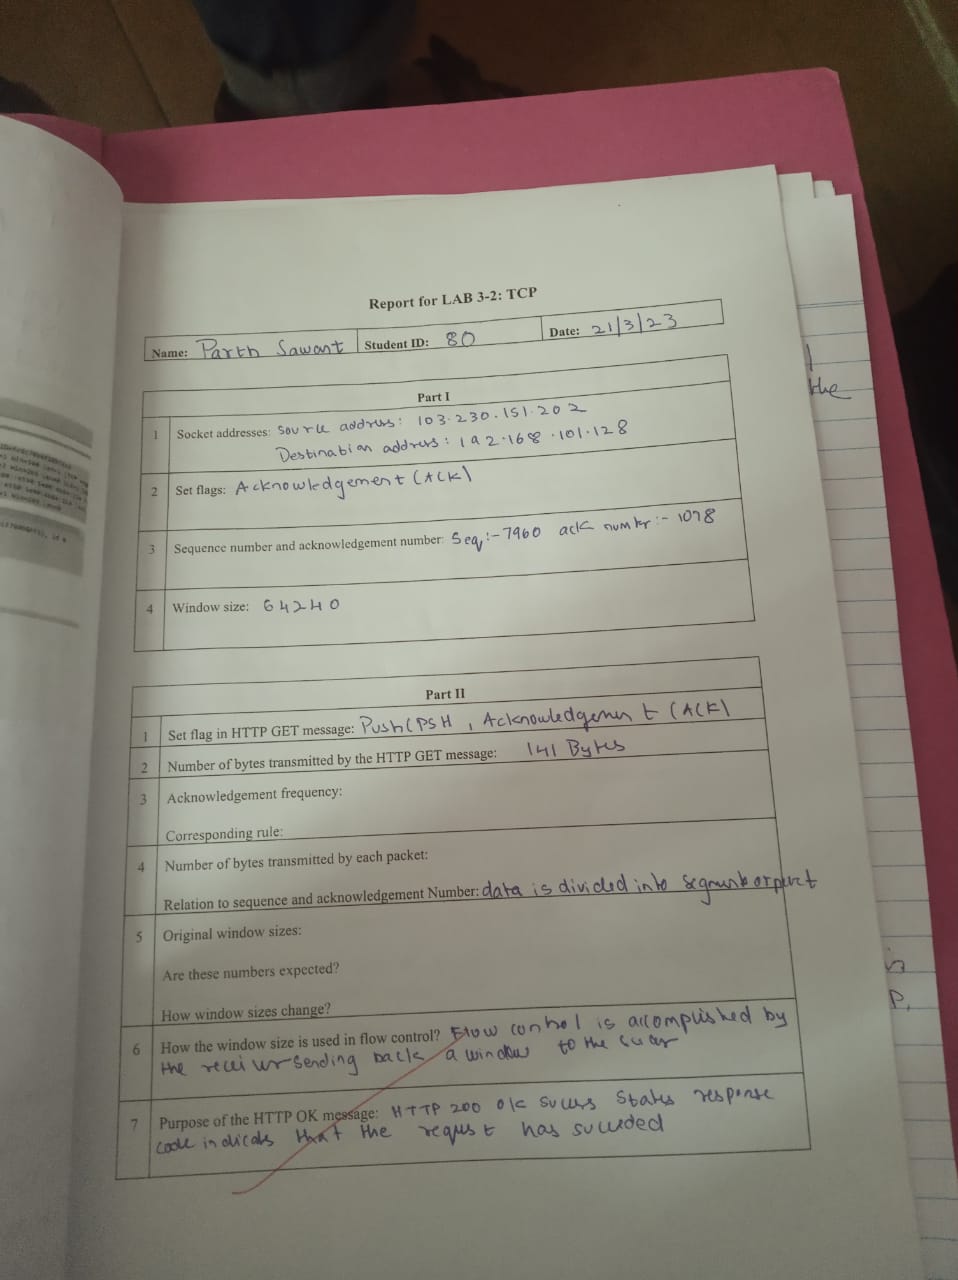 Report for LAB 3-2: TCP
Name: Parth Sawant Student ID: 80 Date: 21/3/23
Part I
1 Socket addresses: Source address: 103.230.151.202
Destination address: 192.168.101.128
2 Set flags: Acknowledgement (ACK)
3 Sequence number and acknowledgement number: Seq:- 7960 ack number:- 1078
4 Window size: 64240
Part II
1 Set flag in HTTP GET message: Push(PSH, Acknowledgement (ACK)
2 Number of bytes transmitted by the HTTP GET message: 141 Bytes
3 Acknowledgement frequency:
Corresponding rule:
4 Number of bytes transmitted by each packet:
Relation to sequence and acknowledgement Number: data is divided into
5 Original window sizes:
Are these numbers expected?
How window sizes change?
6 How the window size is used in flow control? Flow control is accomplished by
the sending back a window to the
7 Purpose of the HTTP OK message: HTTP 200 ok response
code that the request has
the